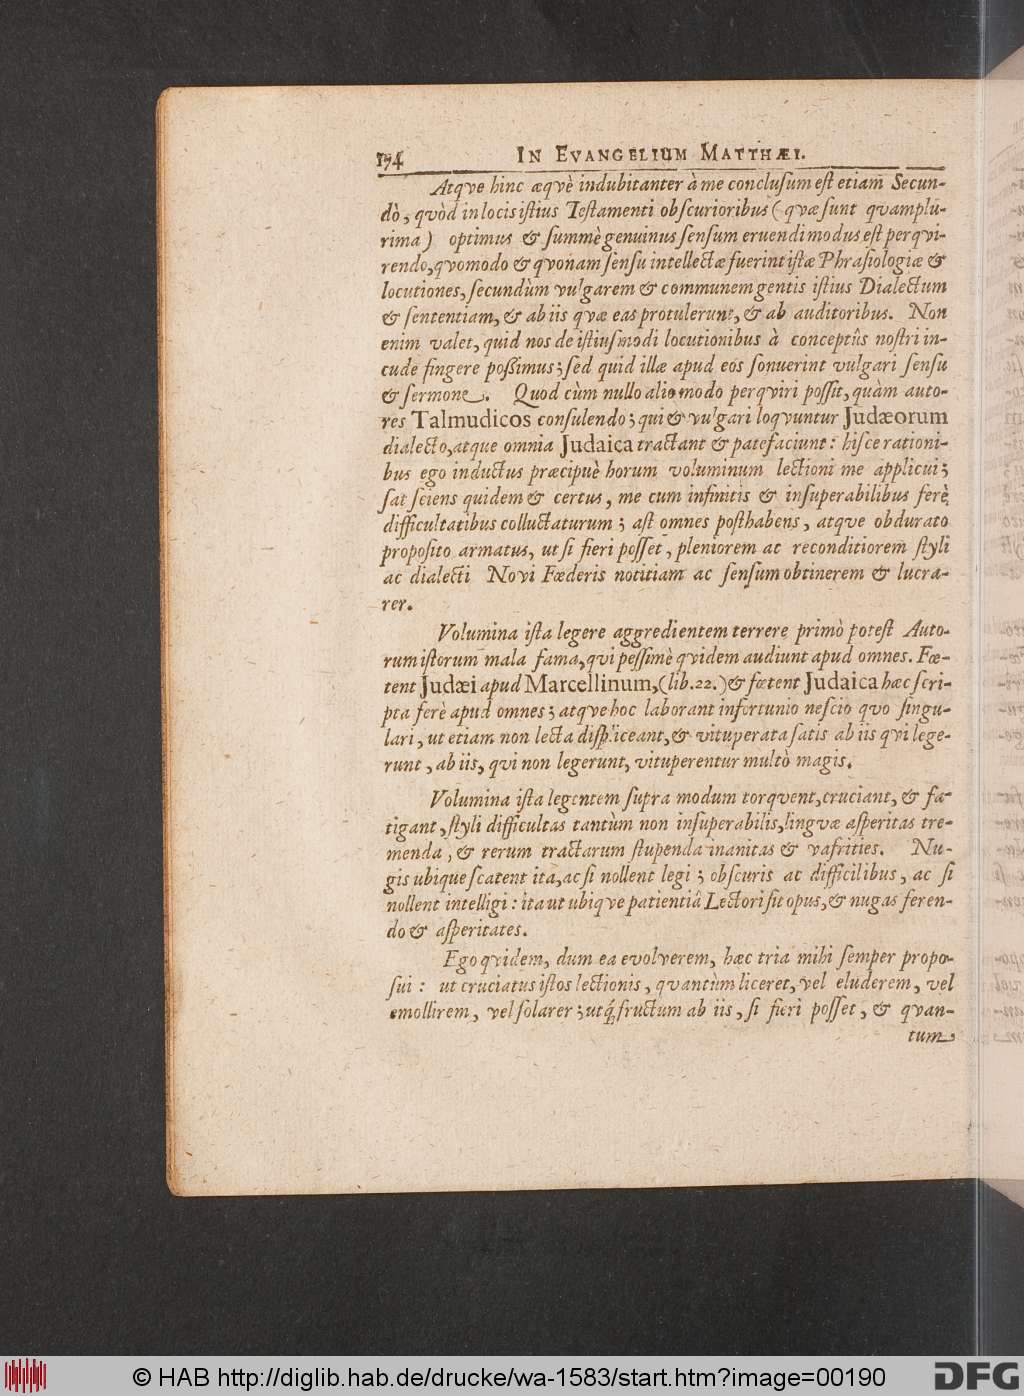 194 IN EVANGELIUM MATTHÆI.
Atqve hinc æqvè indubitanter à me conclusum est etiam Secun-
dò, qvòd in locis istius Testamenti obscurioribus (qvæ sunt qvamplu-
rima) optimus & summè genuinus sensum eruendi modus est perqvi-
rendo, qvomodo & qvonam sensu intellectæ fuerint istæ Phrasiologiæ &
locutiones, secundùm vulgarem & communem gentis istius Dialectum
& sententiam, & ab iis qvæ eas protulerunt, & ab auditoribus. Non
enim valet, quid nos de istiusmodi locutionibus à conceptûs nostri in-
cude fingere possimus; sed quid illæ apud eos sonuerint vulgari sensu
& sermone. Quod cùm nullo alio modo perqviri possit, quàm auto-
res Talmudicos consulendo; qui & vulgari loqvuntur Judæorum
dialecto, atque omnia Judaica tractant & patefaciunt: hisce rationi-
bus ego inductus præcipuè horum voluminum lectioni me applicui;
sat sciens quidem & certus, me cum infinitis & insuperabilibus ferè
difficultatibus colluctaturum; ast omnes posthabens, atqve obdurato
proposito armatus, ut si fieri posset, pleniorem ac reconditiorem styli
ac dialecti Novi Fœderis notitiam ac sensum obtinerem & lucra-
rer.
Volumina ista legere aggredientem terrere primò potest Auto-
rum istorum mala fama, qui pessimè qvidem audiunt apud omnes. Fœ-
tent Judæi apud Marcellinum, (lib. 22.) & fœtent Judaica hæc scri-
pta ferè apud omnes; atqve hoc laborant infortunio nescio qvo singu-
lari, ut etiam non lecta displiceant, & vituperata satis ab iis qvi lege-
runt, ab iis, qvi non legerunt, vituperentur multò magis.
Volumina ista legentem supra modum torqvent, cruciant, & fa-
tigant, styli difficultas tantùm non insuperabilis, lingvæ asperitas tre-
menda, & rerum tractarum stupenda inanitas & vafrities. Nu-
gis ubique scatent ita, ac si nollent legi; obscuris ac difficilibus, ac si
nollent intelligi: ita ut ubiqve patientiâ Lectori sit opus, & nugas feren-
do & asperitates.
Ego qvidem, dum ea evolverem, hæc tria mihi semper propo-
sui: ut cruciatus istos lectionis, qvantùm liceret, vel eluderem, vel
emollirem, vel solarer; utq́; fructum ab iis, si fieri posset, & qvan-
tum
© HAB http://diglib.hab.de/drucke/wa-1583/start.htm?image=00190
DFG